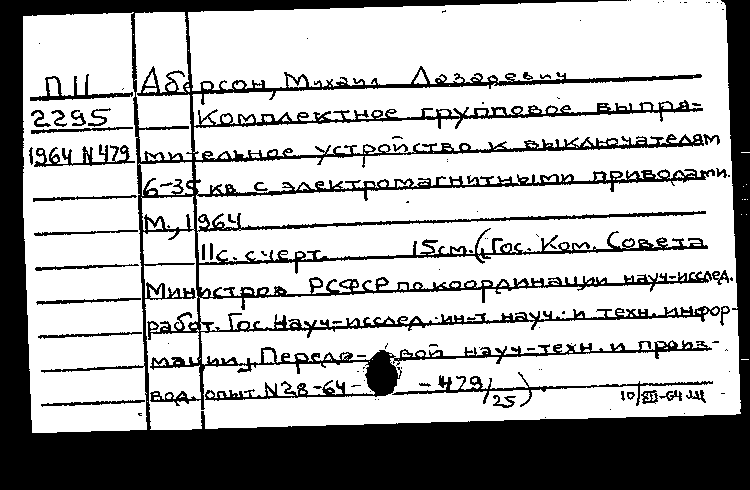 П11 Аберсон, Михаил Лазаревич
2295 Комплектное групповое выпря=
1964 N479 мительное устройство к выключателям
6-35 кв с электромагнитными приводами.
М., 1964
11с. с черт. 15см. (Гос. Ком. Совета
Министров РСФСР по координации науч-исслед.
работ. Гос. Науч-исслед. ин-т науч. и техн. инфор-
мации. Передо- вой науч-техн. и произ-
вод. опыт. N28-64- -479/25)
10/XII-64